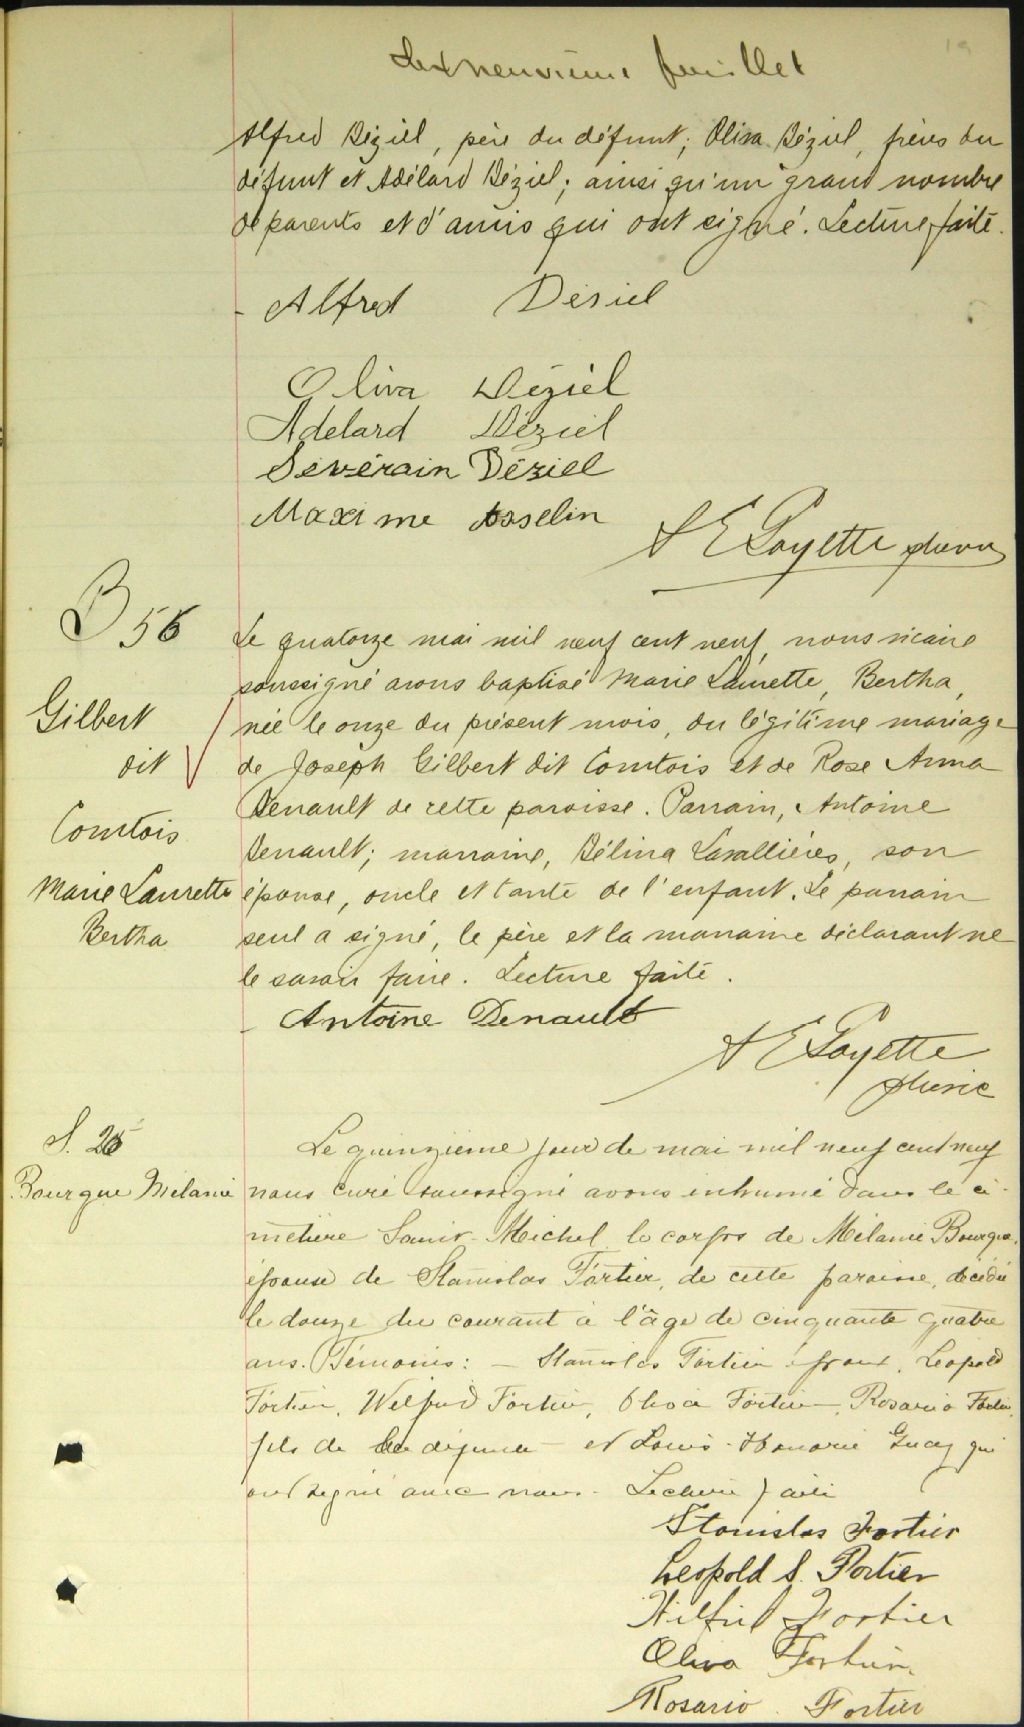 Dixneuvième feuillet
19
Alfred Déziel, père du défunt; Oliva Déziel, frères du
défunt et Adélard Déziel; ainsi qu'un grand nombre
de parents et d'amis qui ont signé. Lecture faite.
Alfred Desiel
Oliva Déziel
Adelard Déziel
Sévérain Déziel
Maxime Asselin
A E Payette
B 56
Gilbert
dit
Comtois
Marie Laurette
Bertha
Le quatorze mai mil neuf cent neuf, nous vicaire
soussigné avons baptisé Marie Laurette, Bertha,
née le onze du présent mois, du légitime mariage
de Joseph Gilbert dit Comtois et de Rose Anna
Denault de cette paroisse. Parrain, Antoine
Denault; marraine, Délina Lavallières, son
épouse, oncle et tante de l'enfant. Le parrain
seul a signé, le père et la marraine déclarant ne
le savoir faire. Lecture faite.
Antoine Denault
A E Payette
ptre vic
S. 26
Bourque Mélanie
Le quinzième jour de mai mil neuf cent neuf
nous curé soussigné avons inhumé dans le ci-
metière Saint-Michel le corps de Mélanie Bourque,
épouse de Stanislas Fortier, de cette paroisse, décédée
le douze du courant à l'âge de cinquante quatre
ans. Témoins: - Stanislas Fortier époux, Leopold
Fortier, Wilfrid Fortier, Oliva Fortier, Rosario Fortier,
fils de la défunte et Louis-Honoré Guay qui
ont signé avec nous. Lecture faite
Stanislas Fortier
Leopold S. Fortier
Wilfrid Fortier
Oliva Fortier
Rosario Fortier